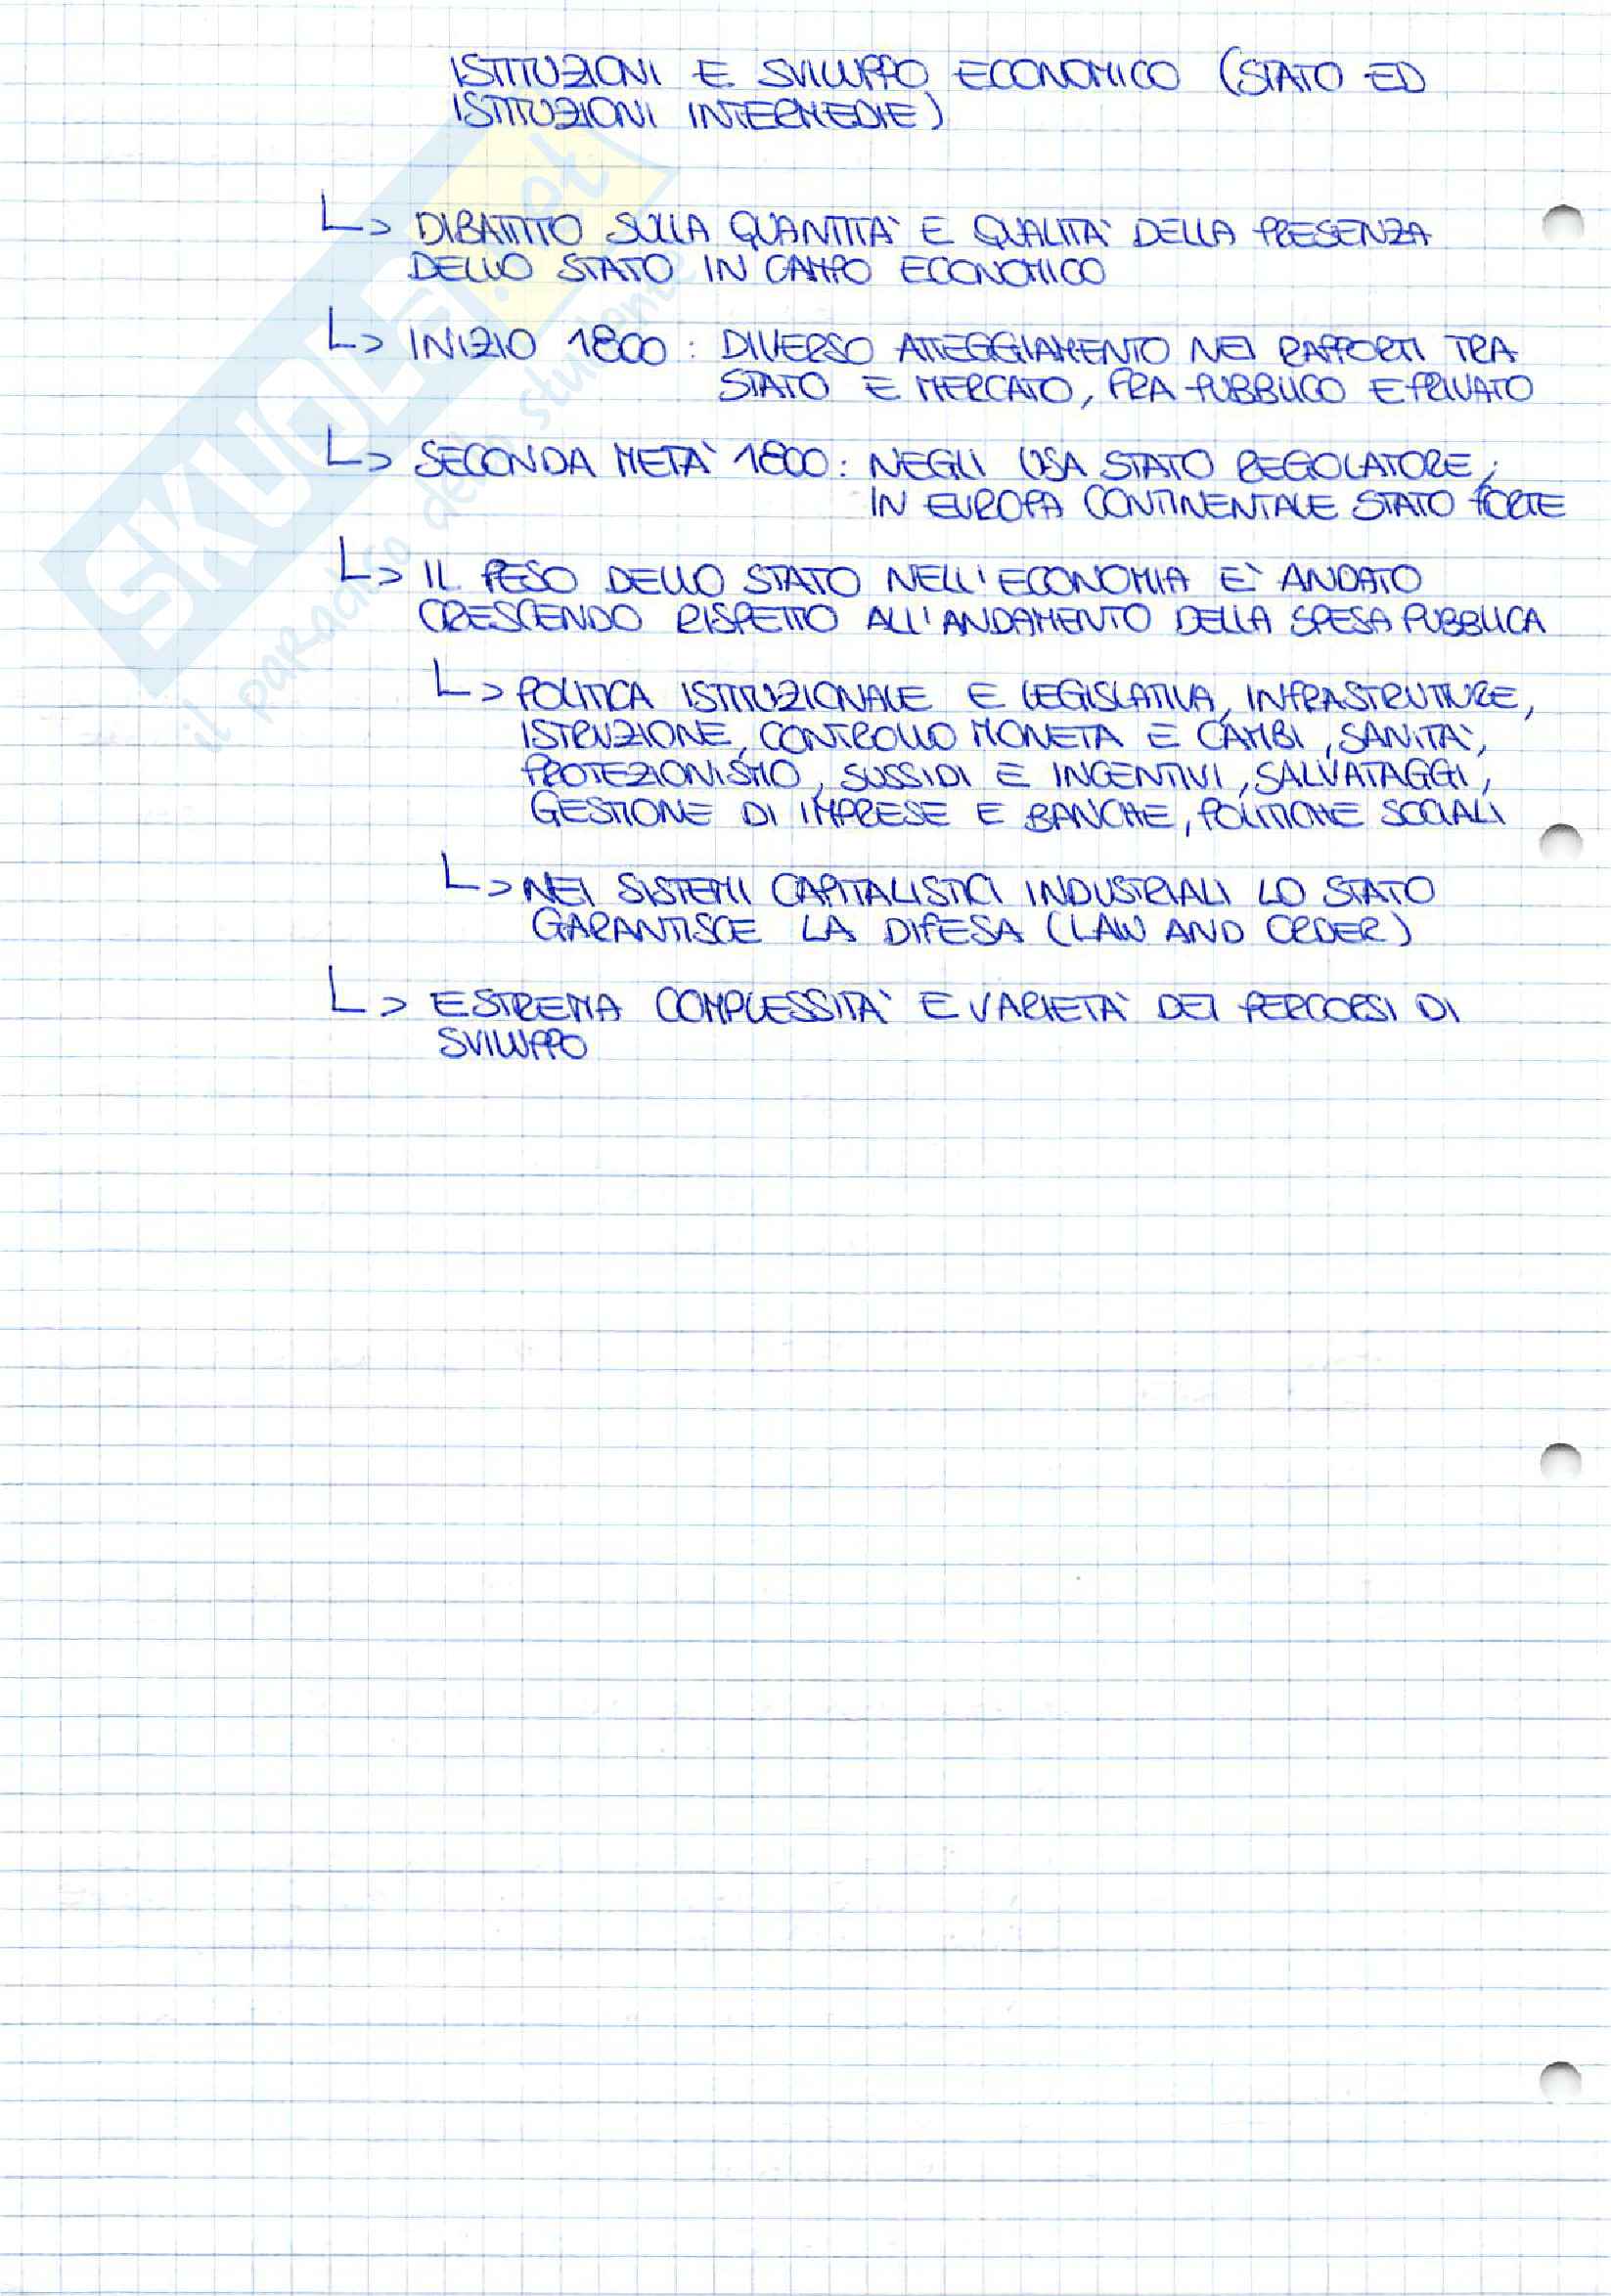 ISTITUZIONI E SVILUPPO ECONOMICO (STATO ED
ISTITUZIONI INTERMEDIE)
↳ DIBATTITO SULLA QUANTITA' E QUALITA' DELLA PRESENZA
DELLO STATO IN CAMPO ECONOMICO
↳ INIZIO 1800: DIVERSO ATTEGGIAMENTO NEI RAPPORTI TRA
STATO E MERCATO, FRA PUBBLICO E PRIVATO
↳ SECONDA META' 1800: NEGLI USA STATO REGOLATORE;
IN EUROPA CONTINENTALE STATO FORTE
↳ IL PESO DELLO STATO NELL'ECONOMIA E' ANDATO
CRESCENDO RISPETTO ALL'ANDAMENTO DELLA SPESA PUBBLICA
↳ POLITICA ISTITUZIONALE E LEGISLATIVA, INFRASTRUTTURE,
ISTRUZIONE, CONTROLLO MONETA E CAMBI, SANITA',
PROTEZIONISMO, SUSSIDI E INCENTIVI, SALVATAGGI,
GESTIONE DI IMPRESE E BANCHE, POLITICHE SOCIALI
↳ NEI SISTEMI CAPITALISTICI INDUSTRIALI LO STATO
GARANTISCE LA DIFESA (LAW AND ORDER)
↳ ESTREMA COMPLESSITA' E VARIETA' DEI PERCORSI DI
SVILUPPO
SKUOLa.net
il paradiso dello studente